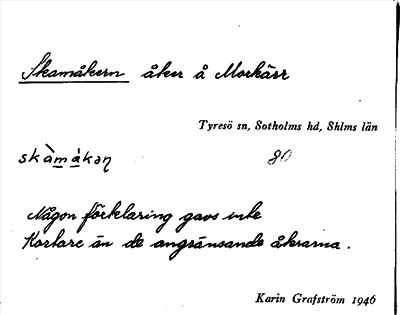 Skamåkern åker å Morkärr
Tyresö sn, Sotholms hd, Shlms län
skàmákəη 80
Någon förklaring gavs inte
Kortare än de angränsande åkrarna.
Karin Grafström 1946